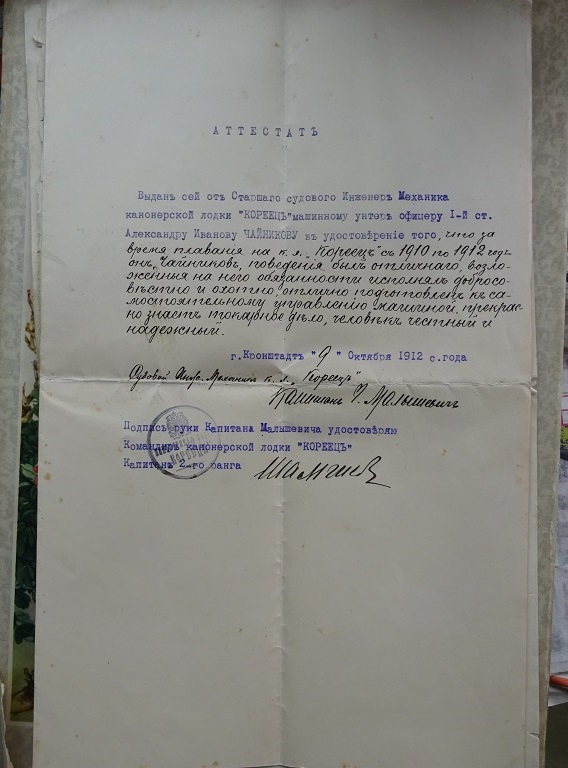 АТТЕСТАТЪ
Выданъ сей отъ Старшаго судового Инженеръ Механика
канонерской лодки "КОРЕЕЦЪ" машинному унтеръ офицеру I-й ст.
Александру Иванову ЧАЙНИКОВУ въ удостовѣреніе того, что за
время плаванія на к.л. "Кореецъ" съ 1910 по 1912 годъ
онъ, Чайниковъ, поведенія былъ отличнаго, возло-
женныя на него обязанности исполнялъ добросо-
вѣстно и охотно, отлично подготовленъ къ са-
мостоятельному управленію машиной, прекрас-
но знаетъ токарное дѣло, человѣкъ честный и
надежный.
г. Кронштадтъ "9" Октября 1912 с. года
Судовой Инж. Механикъ к.л. "Кореецъ"
Капитанъ Малышевичъ
Подпись руки Капитана Малышевича удостовѣряю
Командиръ канонерской лодки "КОРЕЕЦЪ"
Капитанъ 2-го ранга